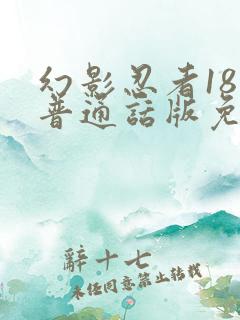 幻影忍者18
普通話版免
辭十七
未经同意禁止转载